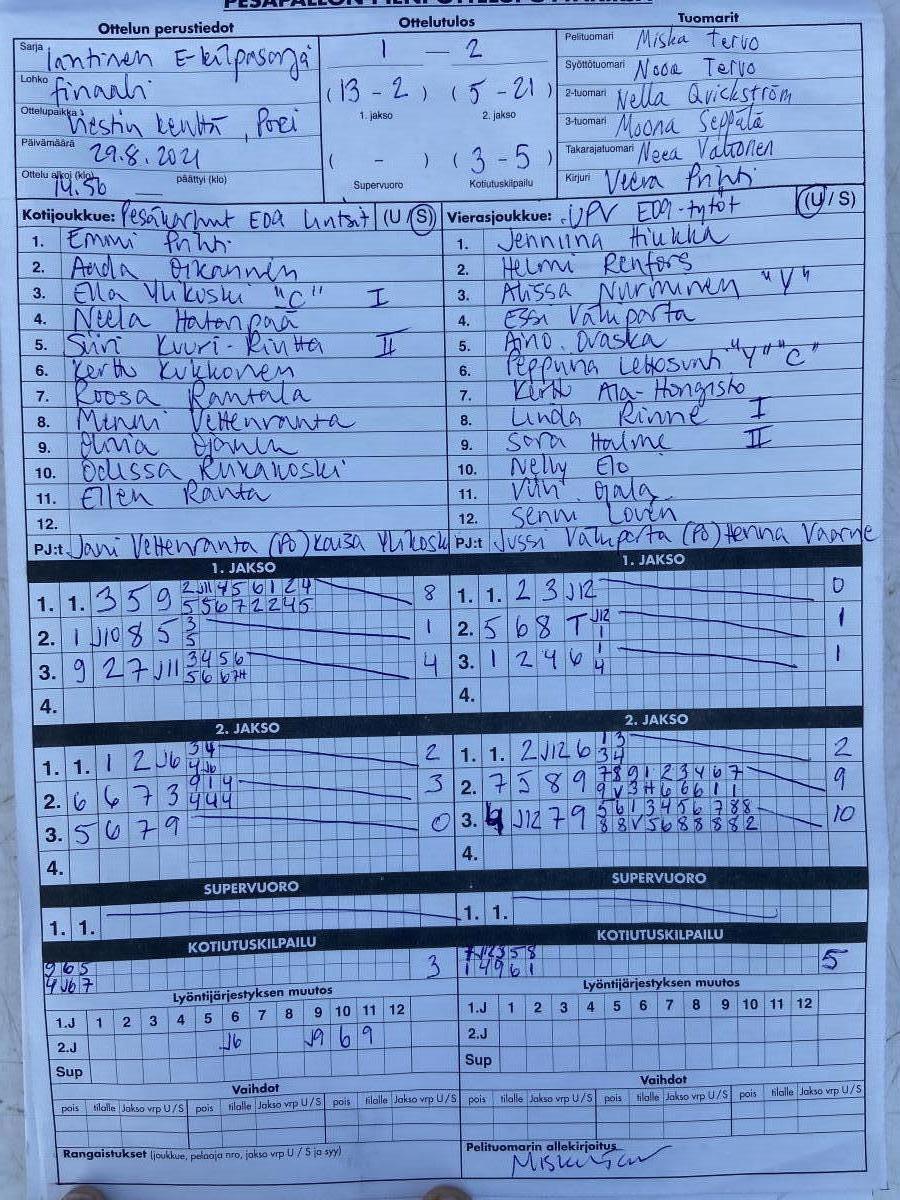 PESÄPALLON PIENPELIOTTELUPÖYTÄKIRJA
Ottelun perustiedot
Sarja läntinen E-kilpasarja
Lohko finaali
Ottelupaikka Hiestin kenttä, Pori
Päivämäärä 29.8.2021
Ottelu alkoi (klo) 14.56 päättyi (klo)
Ottelutulos
1 — 2
(13 - 2) (5 - 21)
1. jakso 2. jakso
( - ) (3 - 5)
Supervuoro Kotiutuskilpailu
Tuomarit
Pelituomari Miska Tervo
Syöttötuomari Nooa Tervo
2-tuomari Nella Qvickström
3-tuomari Moona Seppälä
Takarajatuomari Neea Valtonen
Kirjuri Veera Prihti
Kotijoukkue: Pesäkarhut E09 Lintsit (U / S)
1. Emmi Prihti
2. Aada Oikarinen
3. Ella Ylikoski "C" I
4. Neela Hatanpää
5. Siiri Kuuri-Riutta II
6. Kerttu Kukkonen
7. Roosa Rantala
8. Minni Vettenranta
9. Olivia Ojanen
10. Odessa
11. Ellen Ranta
12.
PJ:t Jani Vettenranta (PO) Kaisa Ylikoski
Vierasjoukkue: UPV E09-tytöt (U / S)
1. Jenniina Hiukka
2. Helmi Renfors
3. Alissa Nurminen "Y"
4. Essi Väliparta
5. Aino Ovaska
6. "Y" "C"
7. Kerttu Ala-Hongisto
8. Linda Rinne I
9. Sara Halme II
10. Nelly Elo
11. Viivi Ojala
12. Senni Loven
PJ:t Jussi Väliparta (PO) Henna Vaarne
1. JAKSO
1. 1. 3 5 9 2 J11 4 5 6 1 2 4 8
5 5 6 7 2 2 4 5
2. 1 J10 8 5 3 1
5
3. 9 2 7 J11 3 4 5 6 4
5 6 6 7H
4.
1. JAKSO
1. 1. 2 3 J12 0
2. 5 6 8 T J12 1
1
3. 1 2 4 6 1 1
4
4.
2. JAKSO
1. 1. 1 2 J6 3 4 2
4 J6
2. 6 6 7 3 9 1 4 3
4 4 4
3. 5 6 7 9 0
4.
2. JAKSO
1. 1. 2 J12 6 1 3 2
3 4
2. 7 5 8 9 7 8 9 1 2 3 4 6 7 9
9 V 3 H 6 6 6 1 1
3. 4 J12 7 9 5 6 1 3 4 5 6 7 8 8 10
8 8 V 5 6 8 8 8 8 2
4.
SUPERVUORO
1. 1.
SUPERVUORO
1. 1.
KOTIUTUSKILPAILU
9 6 5 3
4 J6 7
KOTIUTUSKILPAILU
7 J12 3 5 8 5
1 4 9 6 1
Lyöntijärjestyksen muutos
1.J 1 2 3 4 5 6 7 8 9 10 11 12
2.J J6 J9 6 9
Sup
Lyöntijärjestyksen muutos
1.J 1 2 3 4 5 6 7 8 9 10 11 12
2.J
Sup
Vaihdot
pois tilalle Jakso vrp U / S pois tilalle Jakso vrp U / S pois tilalle Jakso vrp U / S
Vaihdot
pois tilalle Jakso vrp U / S pois tilalle Jakso vrp U / S pois tilalle Jakso vrp U / S
Rangaistukset (joukkue, pelaaja nro, jakso vrp U / S ja syy)
Pelituomarin allekirjoitus